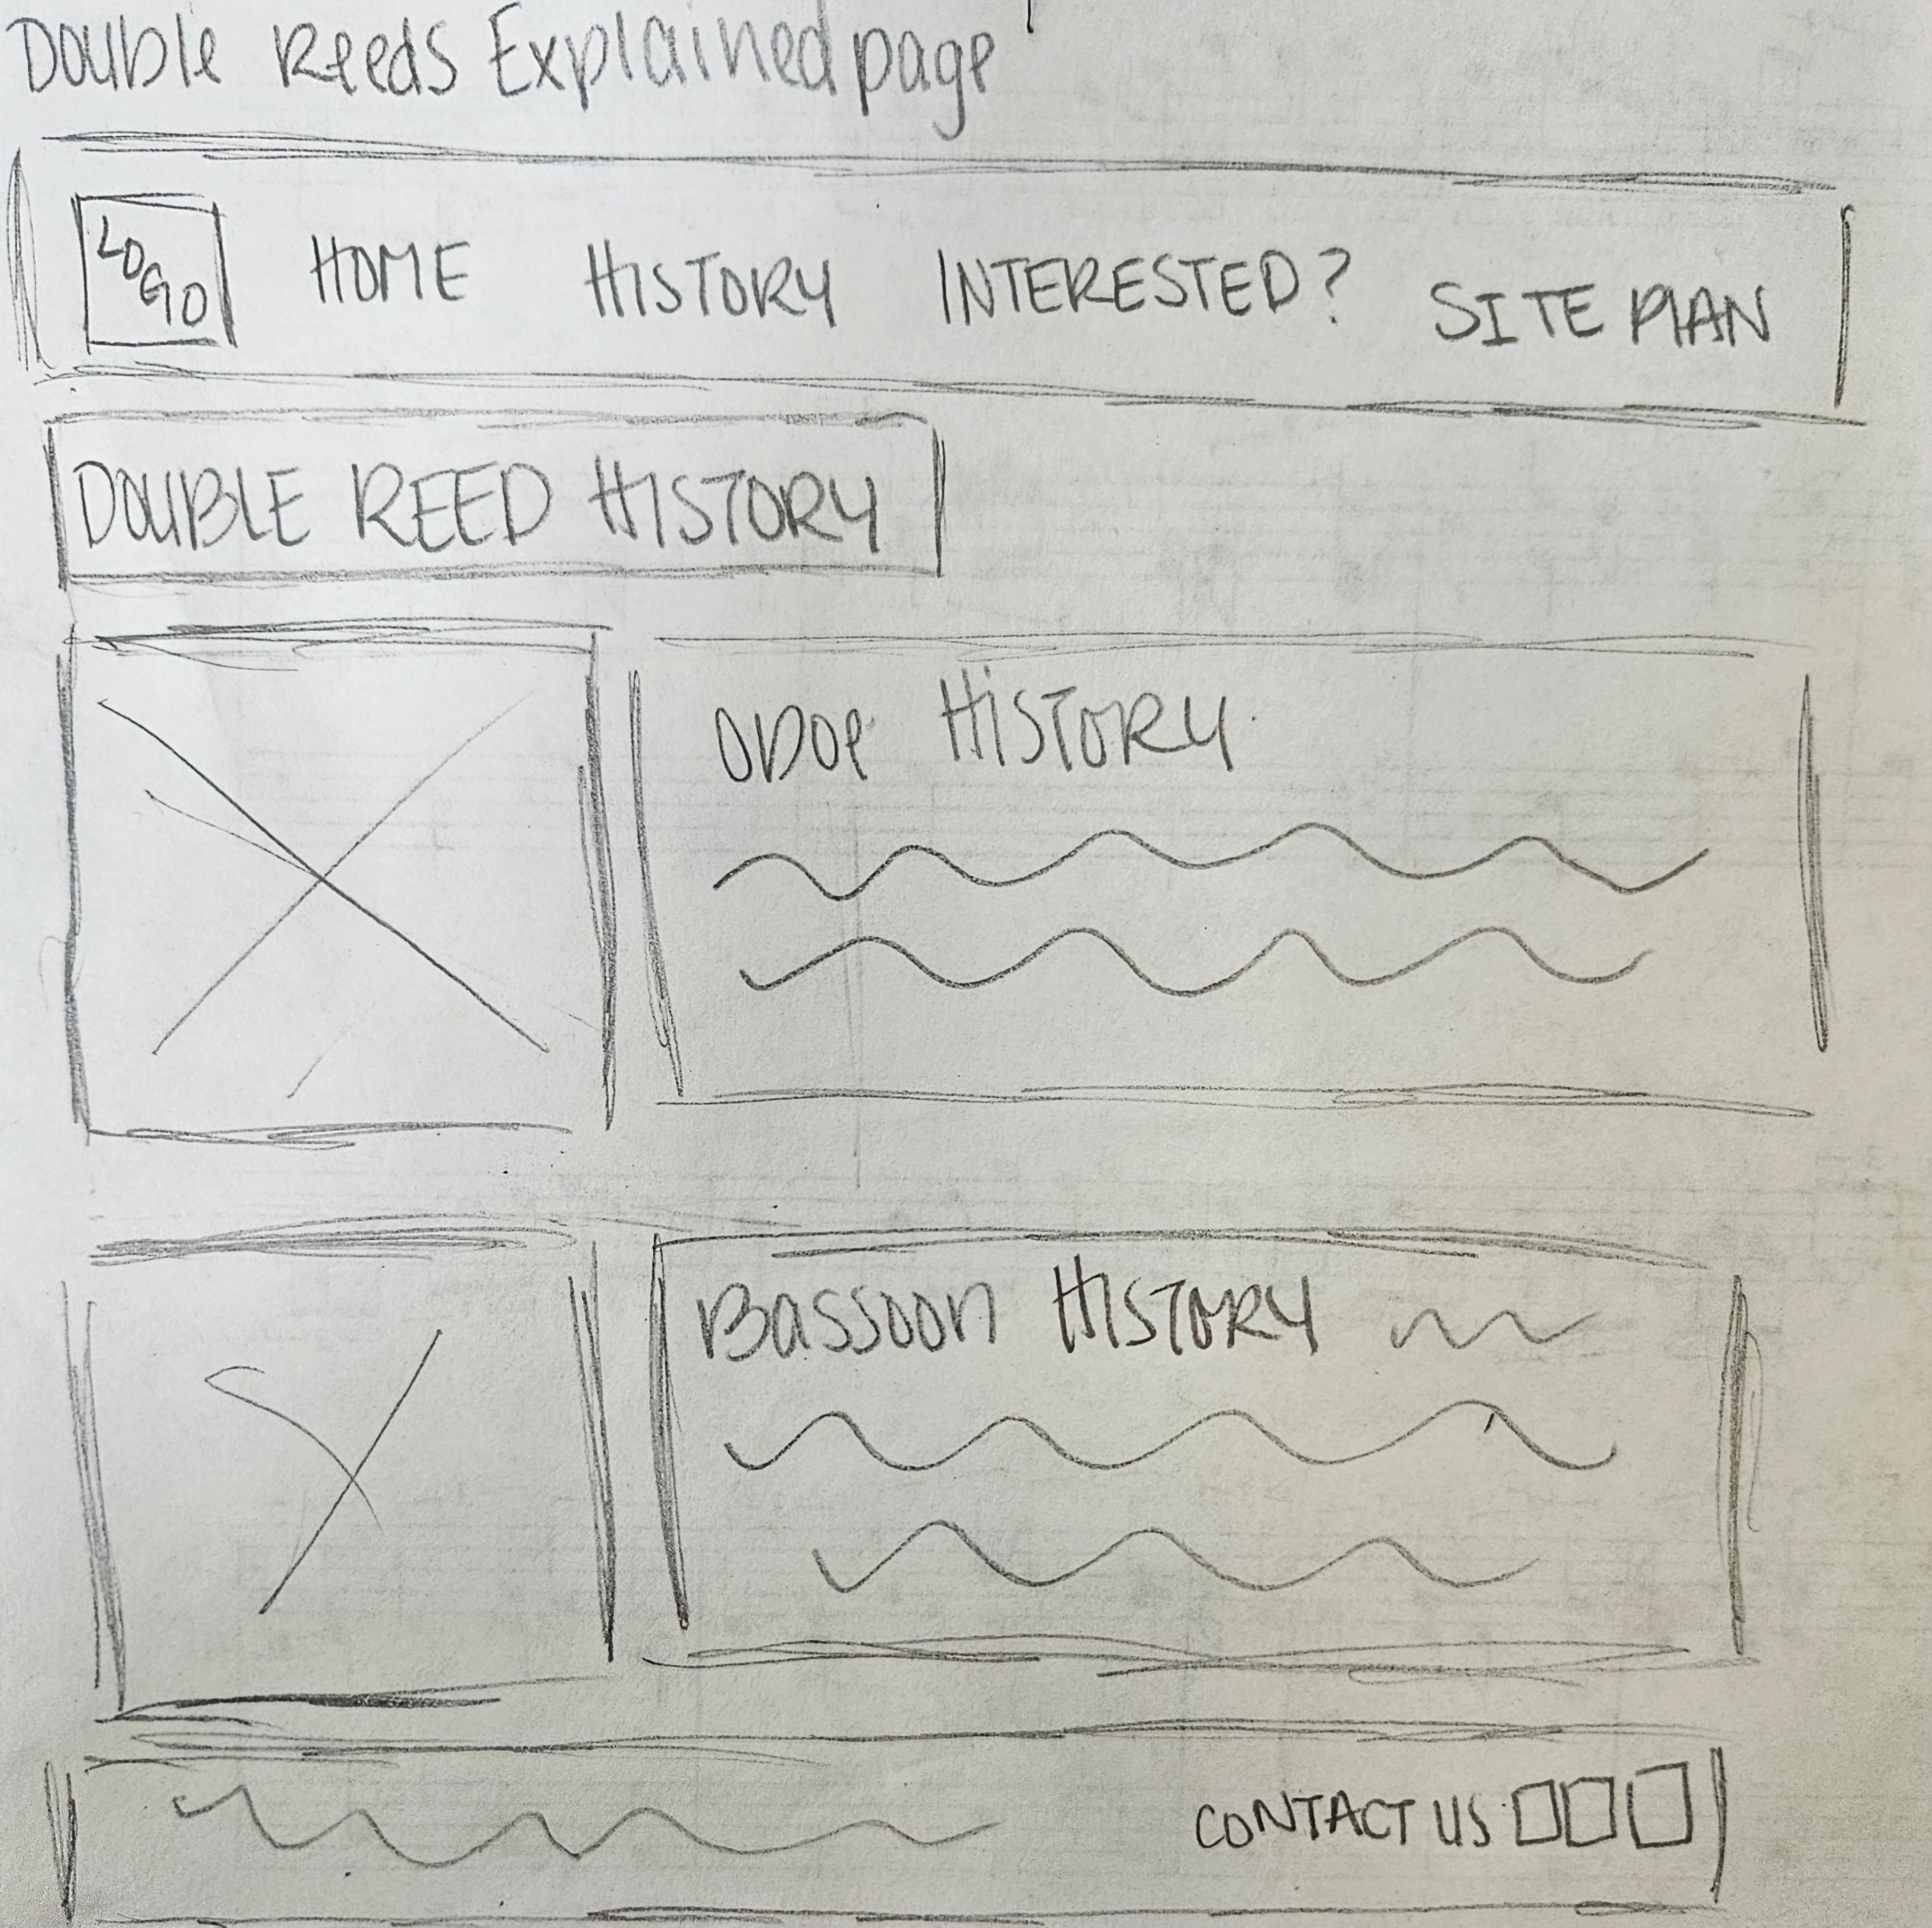 Double Reeds Explained page
LOGO HOME HISTORY INTERESTED? SITE PLAN
DOUBLE REED HISTORY
OBOe HISTORY
BASSOON HISTORY
CONTACT US